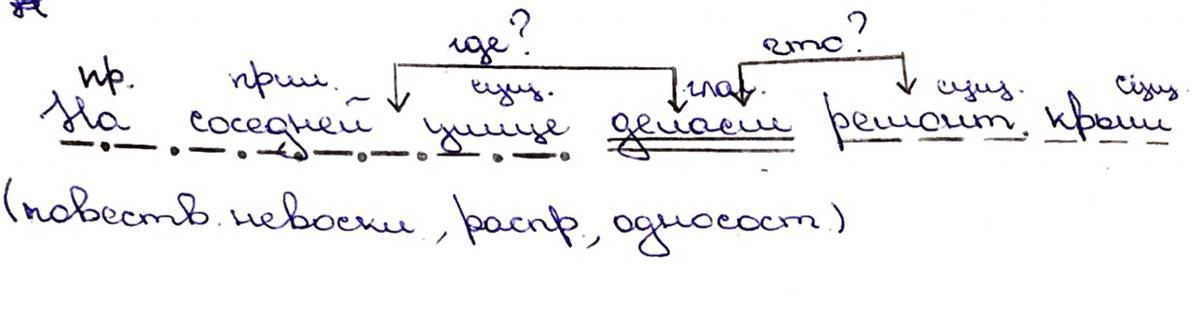 где? что?
пр. прил. сущ. глаг. сущ. сущ.
На соседней улице делают ремонт крыш
(повеств. невоскл, распр, односост)